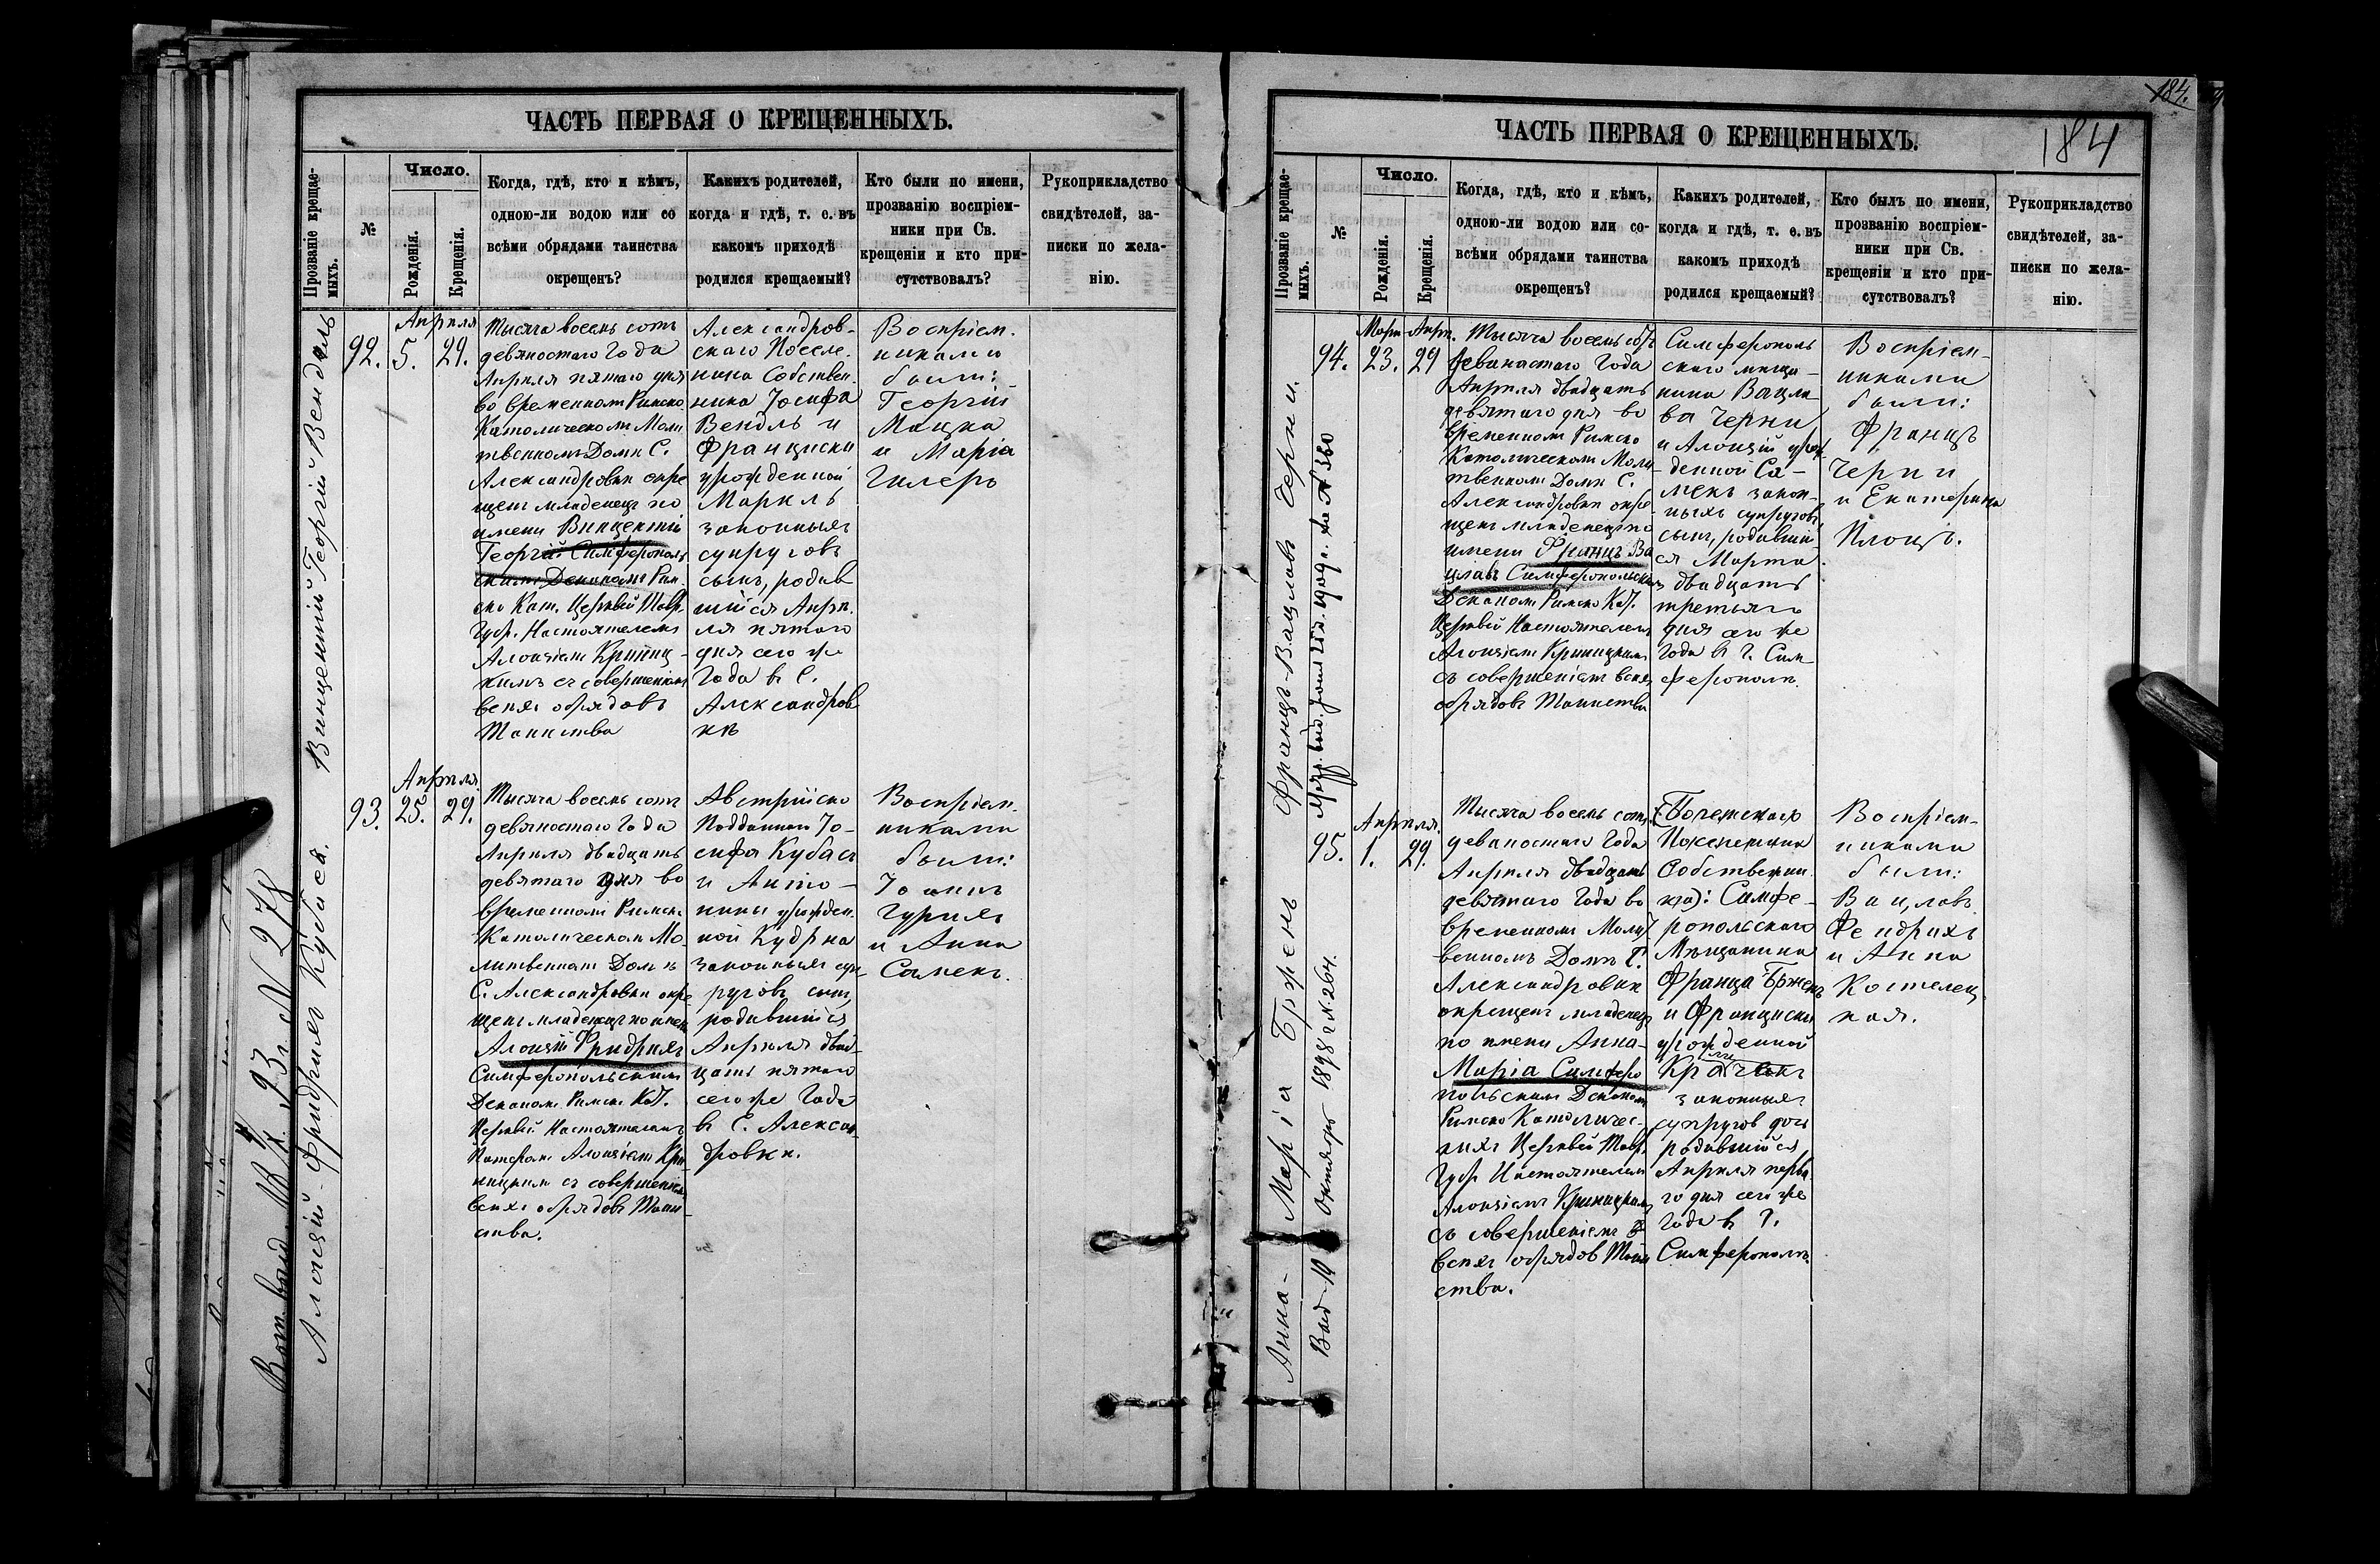 ЧАСТЬ ПЕРВАЯ О КРЕЩЕННЫХЪ.
Прозваніе крещае-
мыхъ.
№
Число.
Рожденія.
Крещенія.
Когда, гдѣ, кто и кѣмъ,
одною-ли водою или со
всѣми обрядами таинства
окрещенъ?
Какихъ родителей,
когда и гдѣ, т. е. въ
какомъ приходѣ
родился крещаемый?
Кто были по имени,
прозванію воспріем-
ники при Св.
крещеніи и кто при-
сутствовалъ?
Рукоприкладство
свидѣтелей, за-
писки по жела-
нію.
Винцентій Георгій Вендль
Апрѣля
92. 5. 29.
Тысяча восемь сотъ
девяностаго Года
Апрѣля пятаго дня
во временномъ Римско
Католическомъ Моли
твенномъ Домѣ С.
Александровки окре
щенъ младенецъ по
имени Винцентій
Георгій Симферополь
скимъ Деканомъ Рим
ско Кат. Церквей Тавр.
Губ. Настоятелемъ
Алоизіемъ Криниц-
кимъ съ совершеніемъ
всѣхъ обрядовъ
Таинства
Александров-
скаго Поселе-
нина Собствен-
ника Іосифа
Вендль и
Франциски
урожденной
Маркль
законныхъ
супруговъ
сынъ, родив
шійся Апрѣ
ля пятаго
дня сего же
Года въ С.
Александров
кѣ
Воспріем-
никами
были:
Георгій
Мацка
и Марія
Гилеръ
Алоизій-Фридрихъ Кубаса.
Апрѣля.
93. 25. 29.
Тысяча восемь сотъ
девяностаго Года
Апрѣля двадцать
девятаго дня во
временномъ Римско
Католическом Мо-
литвенномъ Домѣ
С. Александровки окре
щенъ младенецъ по имени
Алоизій Фридрихъ
Симферопольскимъ
Деканомъ Римско Кат.
Церквей Настоятелемъ
Патеромъ Алоизіемъ Кри
ницкимъ съ совершеніемъ
всѣхъ обрядовъ Таин-
ства.
Австрійско
Подданнаго Іо-
сифа Кубаса
и Анто-
нины урожден-
ной Кудрна
законныхъ суп
руговъ сынъ,
родившійся
Апрѣля двад-
цать пятаго
сего же Года
въ С. Алексан
дровки.
Воспріем-
никами
были:
Іоаннъ
и Анна
Самекъ.
ЧАСТЬ ПЕРВАЯ О КРЕЩЕННЫХЪ.
184.
184
Прозваніе крещае-
мыхъ.
№
Число.
Рожденія.
Крещенія.
Когда, гдѣ, кто и кѣмъ,
одною-ли водою или со-
всѣми обрядами таинства
окрещенъ?
Какихъ родителей,
когда и гдѣ, т. е. въ
какомъ приходѣ
родился крещаемый?
Кто былъ по имени,
прозванію воспріем-
ники при Св.
крещеніи и кто при-
сутствовалъ?
Рукоприкладство
свидѣтелей, за-
писки по жела-
нію.
Францъ-Вацлавъ Черни.
Март Апрѣ.
94. 23. 29
Тысяча восемь сотъ
девяностаго Года
Апрѣля двадцать
девятаго дня во
временномъ Римско
Католическомъ Моли
твенномъ Домѣ С.
Александровки окре-
щенъ младенецъ по
имени Францъ Ва
цлавъ Симферопольским
Деканомъ Римско Кат.
Церквей Настоятелемъ
Алоизіемъ Криницкимъ
съ совершеніемъ всѣхъ
обрядовъ Таинства
Симферополь
скаго мѣща-
нина Вацла-
ва Черни
и Алоизіи урож
денной Са-
мекъ закон-
ныхъ супруговъ
сынъ, родивший
ся Марта
двадцать
третьяго
дня сего же
Года въ Г. Сим
ферополѣ.
Воспріем-
никами
были:
Францъ
Черни
и Екатерина
Плоцъ.
Анна-Марія Брженъ
Выд. 19 Октября 1898 г. № 264.
Апрѣля.
95. 1. 29.
Тысяча восемь сотъ
девяностаго Года
Апрѣля двадцать
девятаго Года во
временномъ Молит
венномъ Домѣ С.
Александровки
окрещенъ младенецъ
по имени Анна-
Марія Симферо
польскимъ Деканомъ
Римско Католичес-
кихъ Церквей Тавр.
Губ. Настоятелемъ
Алоизіемъ Криницкимъ
съ совершеніемъ
всѣхъ обрядовъ Таин
ства.
Поселенина
Собственни
ка): Симфе-
ропольскаго
Мѣщанина
Франца Брженъ
и Франциски
урожденной
законныхъ
супруговъ дочь
родившійся
Апрѣля перва
го дня сего же
Года въ Г.
Симферополѣ.
Воспріем-
никами
были:
Вацлавъ
Фендрихъ
и Анна
Костелец
кая.